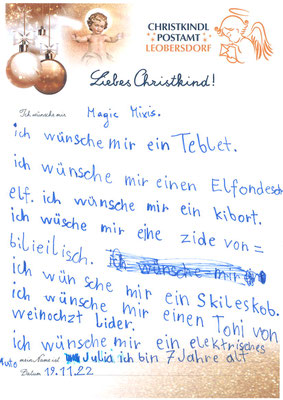 CHRISTKINDL
POSTAMT
LEOBERSDORF
Liebes Christkind!
Ich wünsche mir Magic Mixis.
ich wünsche mir ein Teblet.
ich wünsche mir einen Elfondesch
elf. ich wünsche mir ein kibort.
ich wüsche mir eine zide von =
bilieilisch. ich wünsche mir
ich wünsche mir ein Skileskob.
ich wünsche mir einen Toni von
weinochzt Lider.
ich wünsche mir ein elektrisches
Auto mein Name ist Julia ich bin 7 Jahre alt
Datum 19.11.22